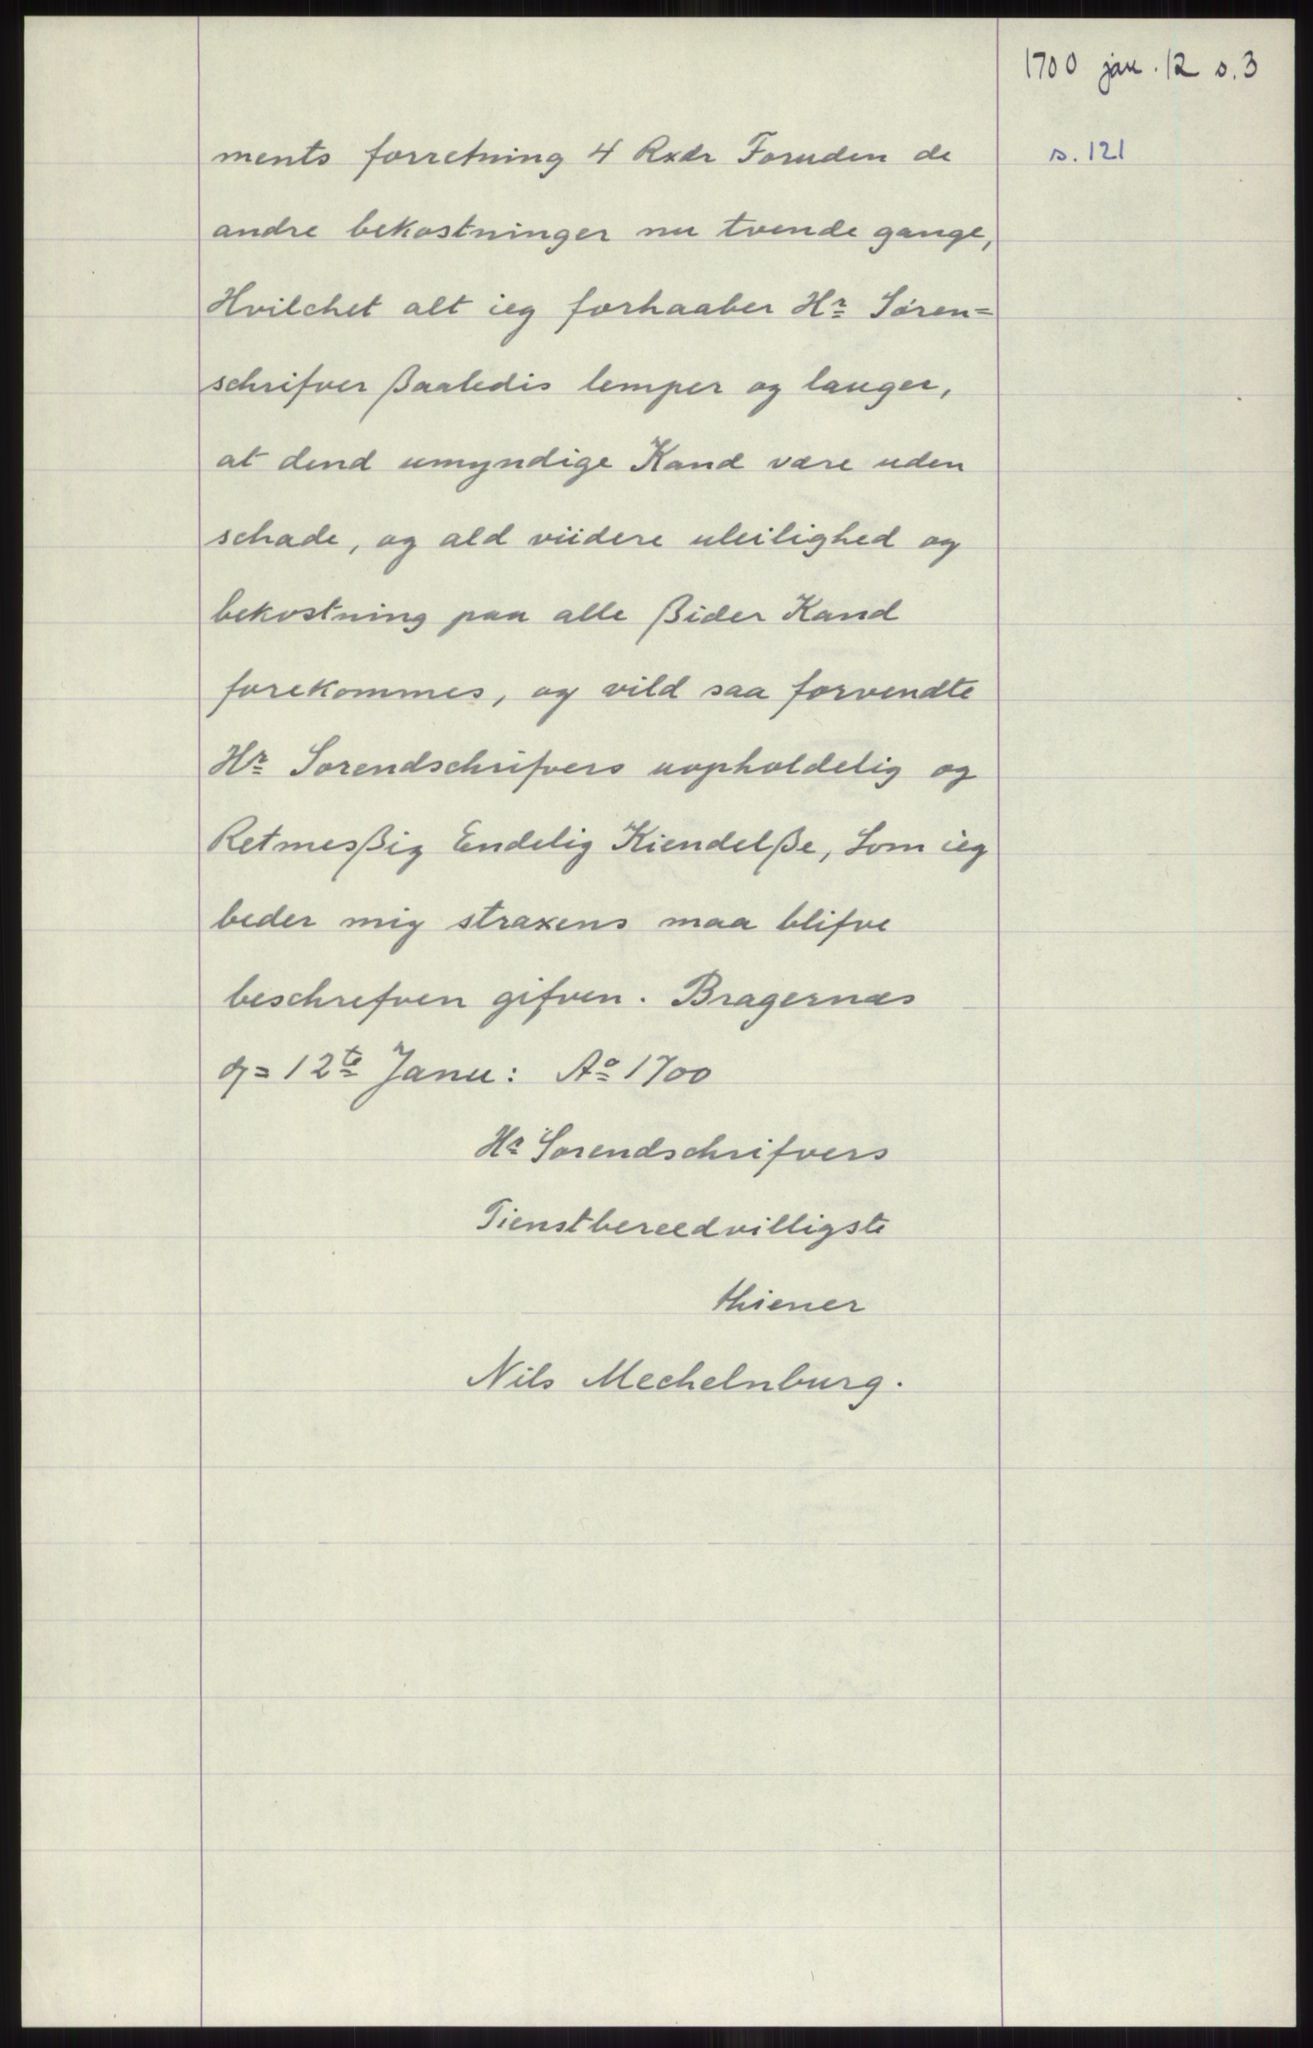 1700 jan. 12 s. 3
s. 121
ments forretning 4 Rxdr Foruden de
andre bekostninger nu tvende gange,
Hvilchet alt ieg forhaaber Hr Søren=
schrifver ßaaledis lemper og lauger,
at dend umyndige Kand være uden
schade, og ald viidere uleilighed og
bekostning paa alle ßider Kand
forekommes, og vild saa forvendte
Hr Sorendschrifvers uopholdelig og
Retmesßig Endelig Kiendelße, Som ieg
beder mig straxens maa blifve
beschrefven gifven. Bragernæs
12te Janu: Ao 1700
Hr Sorendschrifvers
Tienstbereedvilligste
thiener
Nils Mechelnburg.